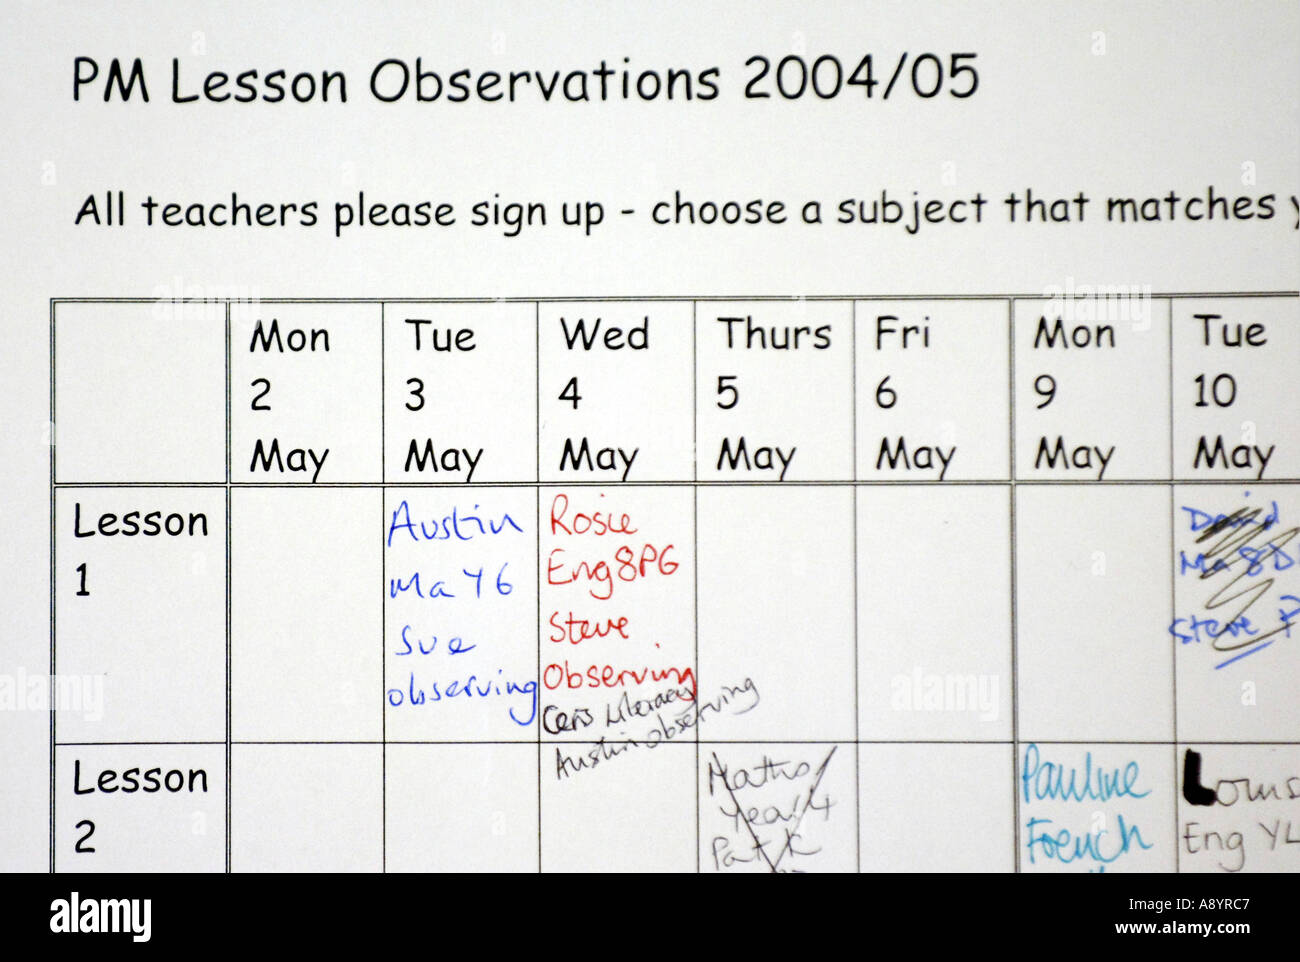 PM Lesson Observations 2004/05
All teachers please sign up - choose a subject that matches
Mon 2 May
Tue 3 May
Wed 4 May
Thurs 5 May
Fri 6 May
Mon 9 May
Tue 10 May
Lesson 1
Austin
Ma Y6
Sue
observing
Rosie
Eng 8PG
Steve
Observing
Literacy
Austin observing
David
Ma 8D
Steve
Lesson 2
Maths
Year 4
Pat K
Pauline
French
Louis
Eng YL
alamy
Image ID: A8YRC7
www.alamy.com